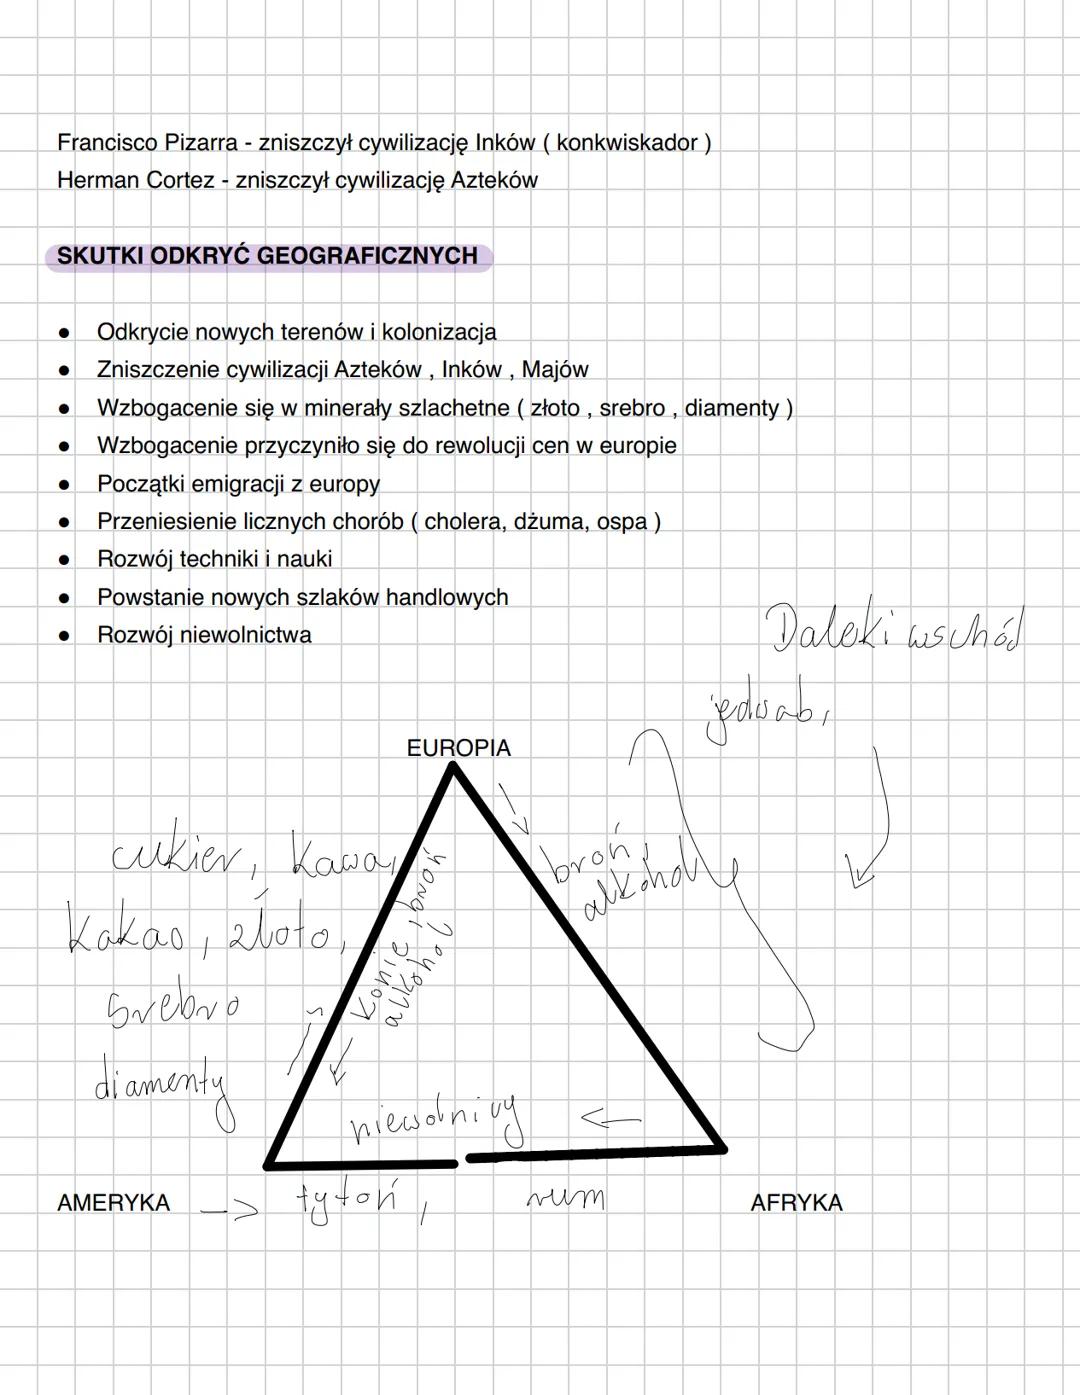 Francisco Pizarra - zniszczył cywilizację Inków ( konkwiskador )
Herman Cortez - zniszczył cywilizację Azteków
SKUTKI ODKRYĆ GEOGRAFICZNYCH
● Odkrycie nowych terenów i kolonizacja
● Zniszczenie cywilizacji Azteków , Inków , Majów
● Wzbogacenie się w minerały szlachetne ( złoto , srebro , diamenty )
● Wzbogacenie przyczyniło się do rewolucji cen w europie
● Początki emigracji z europy
● Przeniesienie licznych chorób ( cholera, dżuma, ospa )
● Rozwój techniki i nauki
● Powstanie nowych szlaków handlowych
● Rozwój niewolnictwa
Daleki wschód
jedwab,
EUROPIA
cukier, kawa,
kakao, złoto,
srebro
diamenty
konie, broń
alkohol
broń,
alkohol
niewolnicy
AMERYKA -> tytoń, rum AFRYKA